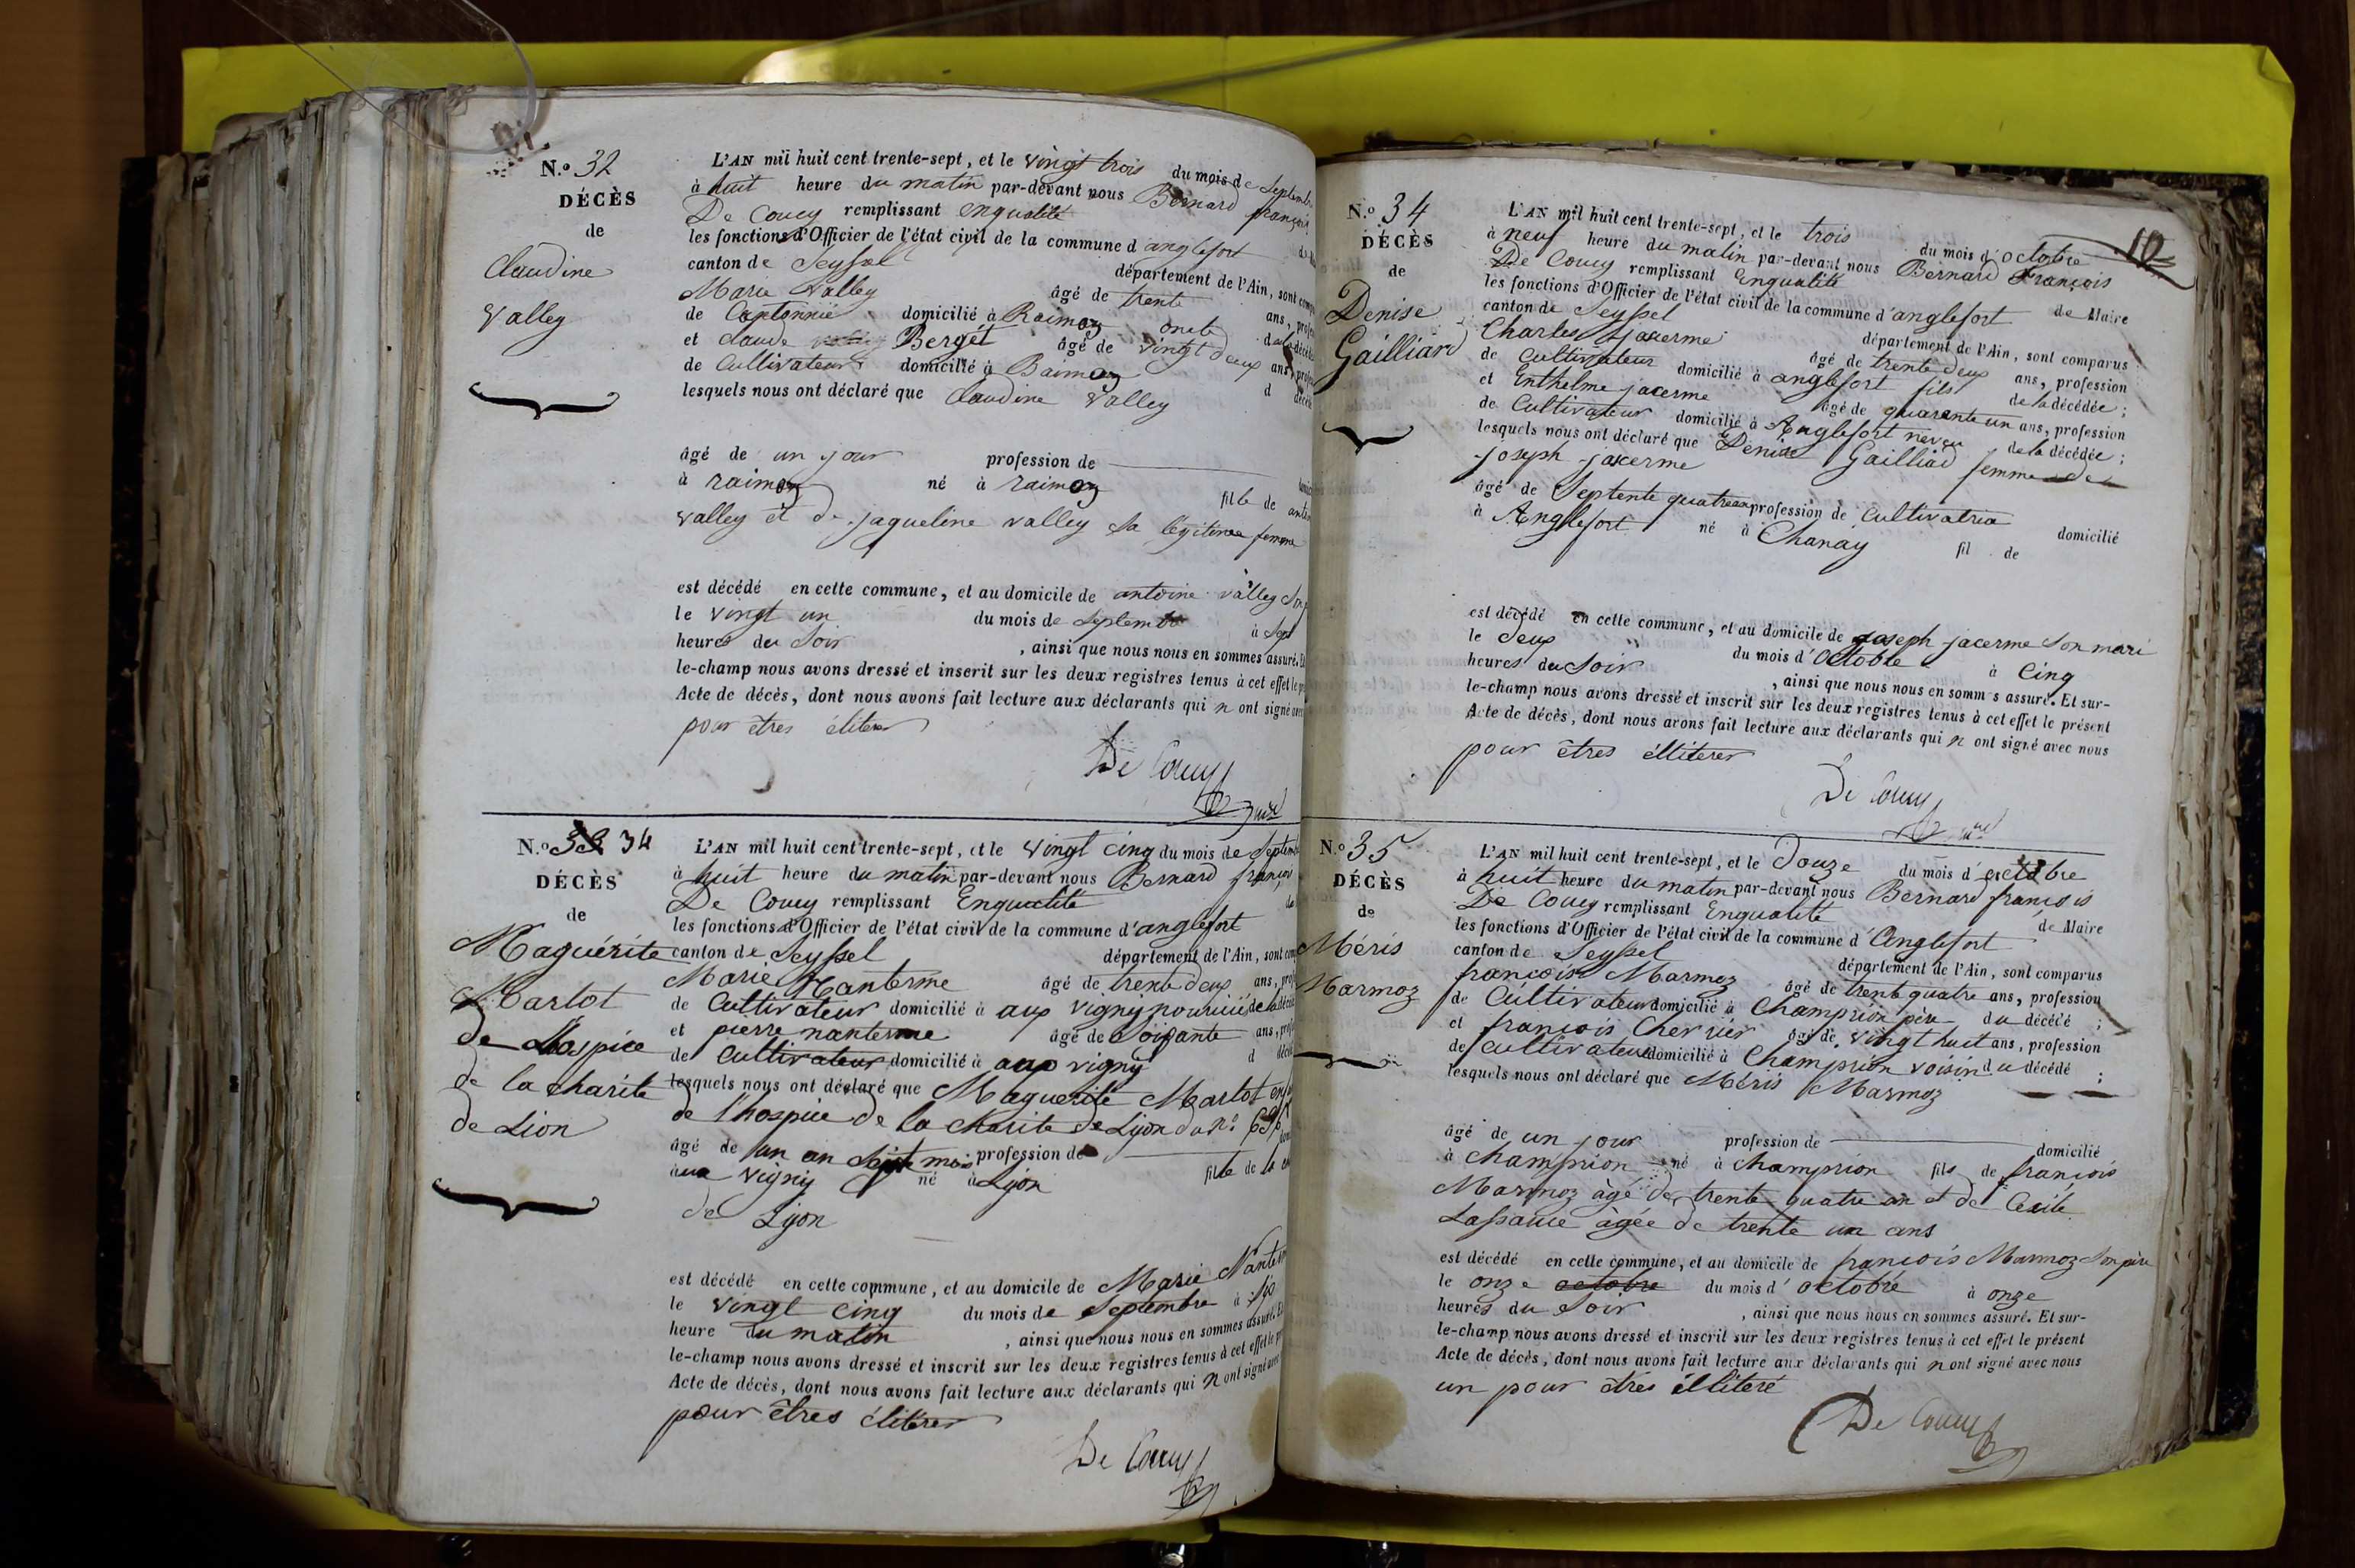 N.o 32
DÉCÈS
de
Claudine
Valley
L'AN mil huit cent trente-sept, et le vingt trois du mois de Septembre
à huit heure du matin par-devant nous Bernard françois
De Coucy remplissant enqualité
les fonctions d'Officier de l'état civil de la commune d'anglefort
canton de Seyssel département de l'Ain, sont
Marie Valley âgé de trente ans,
de domicilié à Raimoz oncle de la
et claude Berget âgé de vingt deux ans,
de Cultivateur domicilié à Raimoz d
lesquels nous ont déclaré que Claudine Valley
âgé de un jour profession de
à raimoz né à raimoz fille de
valley et de jaqueline valley sa légitime femme
est décédé en cette commune, et au domicile de antoine valley
le vingt un du mois de Septembre à Sept
heures du Soir , ainsi que nous nous en sommes assuré.
le-champ nous avons dressé et inscrit sur les deux registres tenus à cet effet le
Acte de décès, dont nous avons fait lecture aux déclarants qui n ont signé avec
pour êtres éliterer
De Coucy
N.o 33 34
DÉCÈS
de
Maguérite
Martot
de L'hospice
de la charite
de Lion
L'AN mil huit cent trente-sept, et le vingt cinq du mois de Septembre
à huit heure du matin par-devant nous Bernard françois
De Coucy remplissant Enqualité
les fonctions d'Officier de l'état civil de la commune d'anglefort
canton de Seyssel département de l'Ain, sont
Marie Nanterme âgé de trente deux ans,
de Cultivateur domicilié à aux vigny nouricie de la
et pierre nanterme âgé de Soixante ans,
de Cultivateur domicilié à aux vigny d
lesquels nous ont déclaré que Maguerite Martot
de l'hospice de la Charite de Lyon du n.o
âgé de un an Sept mois profession de
aux vigny né à Lyon fille de la
de Lyon
est décédé en cette commune, et au domicile de Marie
le vingt cinq du mois de Septembre à
heure du matin , ainsi que nous nous en sommes assuré.
le-champ nous avons dressé et inscrit sur les deux registres tenus à cet effet le
Acte de décès, dont nous avons fait lecture aux déclarants qui n ont signé avec
pour êtres éliterer
De Coucy
10
N.o 34
DÉCÈS
de
Denise
Gailliard
L'AN mil huit cent trente-sept, et le trois du mois d'octobre
à neuf heure du matin par-devant nous Bernard François
De Coucy remplissant Enqualité de Maire
les fonctions d'Officier de l'état civil de la commune d'anglefort
canton de Seyssel département de l'Ain, sont comparus
Charles jacerme âgé de trente deux ans, profession
de Cultivateur domicilié à anglefort fils de la décédée ;
et Enthelme jacerme âgé de quarente un ans, profession
de Cultivateur domicilié à Anglefort neveu de la décédée ;
lesquels nous ont déclaré que Denise Gailliad femme de
joseph jacerme
âgé de Septente quatre an profession de cultivatrice domicilié
à Anglefort né à Chanay fil de
est décédé en cette commune, et au domicile de joseph jacerme Son mari
le deux du mois d'Octobre à cinq
heures du Soir , ainsi que nous nous en somm s assuré. Et sur-
le-champ nous avons dressé et inscrit sur les deux registres tenus à cet effet le présent
Acte de décès, dont nous avons fait lecture aux déclarants qui n ont signé avec nous
pour êtres élliterer
De Coucy
N.o 35
DÉCÈS
de
Méris
Marmoz
L'AN mil huit cent trente-sept, et le Douze du mois d'octobre
à huit heure du matin par-devant nous Bernard françois
De Coucy remplissant Enqualité de Maire
les fonctions d'Officier de l'état civil de la commune d'Anglefort
canton de Seyssel département de l'Ain, sont comparus
françois Marmoz âgé de trente quatre ans, profession
de Cultivateur domicilié à Champrion père du décédé ;
et françois Cherrier âgé de vingt huit ans, profession
de Cultivateur domicilié à Champrion voisin du décédé ;
lesquels nous ont déclaré que Méris Marmoz
âgé de un jour profession de domicilié
à champrion né à champrion fils de françois
Marmoz âgé de trente quatre an et de Cecile
Lassauce âgée de trente un ans
est décédé en cette commune, et au domicile de françois Marmoz Son père
le onze octobre du mois d'octobre à onze
heures du Soir , ainsi que nous nous en sommes assuré. Et sur-
le-champ nous avons dressé et inscrit sur les deux registres tenus à cet effet le présent
Acte de décès, dont nous avons fait lecture aux déclarants qui n ont signé avec nous
un pour êtres élliteré
De Coucy